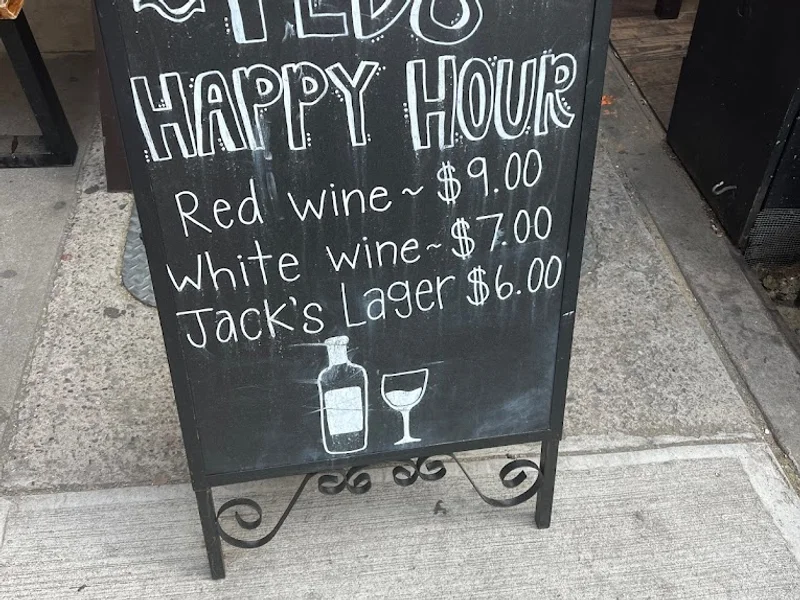 HAPPY HOUR
Red wine ~ $9.00
White wine ~ $7.00
Jack's Lager $6.00